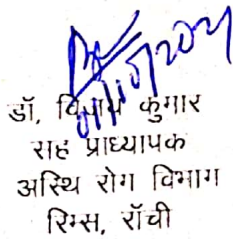 डॉ, कुमार
सह प्राध्यापक
अस्थि रोग विभाग
रिम्स, रॉंची